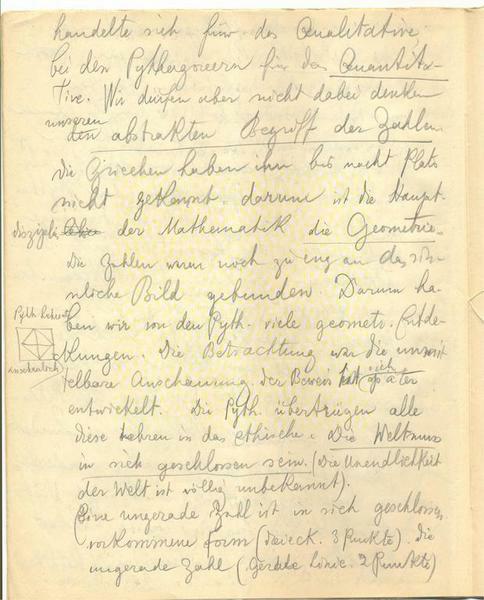 handelte sich für das Qualitative
bei den Pythagoreern für das Quantita-
tive. Wir dürfen aber nicht dabei denken
unseren
den abstrakten Begriff der Zahlen.
Die Griechen haben ihn bis nach Plato
nicht gekannt darum ist die Haupt-
disziplin der Mathematik die Geometrie.
Die Zahlen waren noch zu eng an das sin-
nliche Bild gebunden. Darum ha-
ben wir von den Pyth. viele geometr. Entde-
ckungen. Die Betrachtung war die unmit
Pyth. Lehrsatz
anschaulich
telbare Anschauung. der Beweis hat sich später
entwickelt. Die Pyth. übertrügen alle
diese Lehren in das ethische. Die Welt muss
in sich geschlossen sein. (Die Unendlichkeit
der Welt ist völlig unbekannt).
Eine ungerade Zahl ist in sich geschlossen,
vorkommene form (Dreieck. 3 Punkte). Die
ungerade Zahl (Gerade Linie. 2 Punkte)